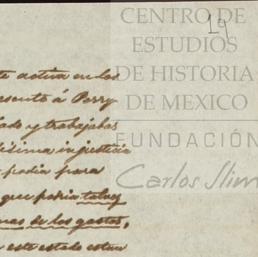 CENTRO DE
ESTUDIOS
DE HISTORIA
DE MEXICO
FUNDACIÓN
Carlos Slim
19
te activa en los
esento á Perry
lado y trabajabas
ísima injusticia
podia para
que podria talvez
mas de los gastos,
este estado estan